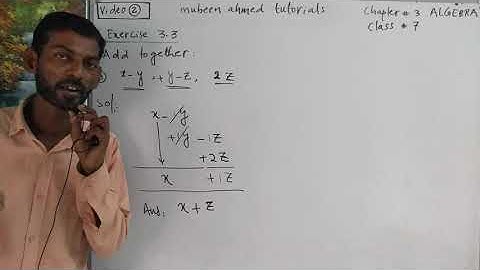 Video ② mubeen ahmed tutorials Chapter # 3 ALGEBRA
class # 7
Exercise 3.3
Add together:
x-y, +y-z, 2z
Sol:
x-y
+1y -1z
+2z
x +1z
Ans: x+z